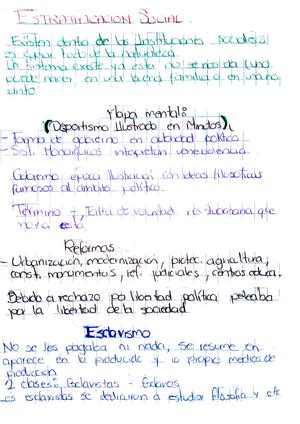 ESTRATIFICACION SOCIAL.
Existen dentro de las Instituciones sociales
es sobre todo de la naturaleza
Un sistema existe ya esta no se pida (uno
puede nacer en una buena familia o en una no
Mapa mental:
(Despotismo Ilustrado en Minutos)
- Forma de gobierno en autoridad politica
- Sol. Monarquicos
Gobierno epoca Ilustracion con ideas filosoficas
famosos al ambito politico.
Termino - Falta de voluntad
Reformas
- Urbanizacion, modernizacion, protec. agricultura,
const. monumentos, ref. judiciales, centros educa.
Debido a rechazo por libertad politica peleaba
por la libertad de la sociedad
Esclavismo
No se les pagaba ni nada, se resume en
aparece en lo producido y la propia medios de
produccion
2 clases, Esclavistas - Esclavos
Los esclavistas se dedicaron a estudiar filosofia y etc